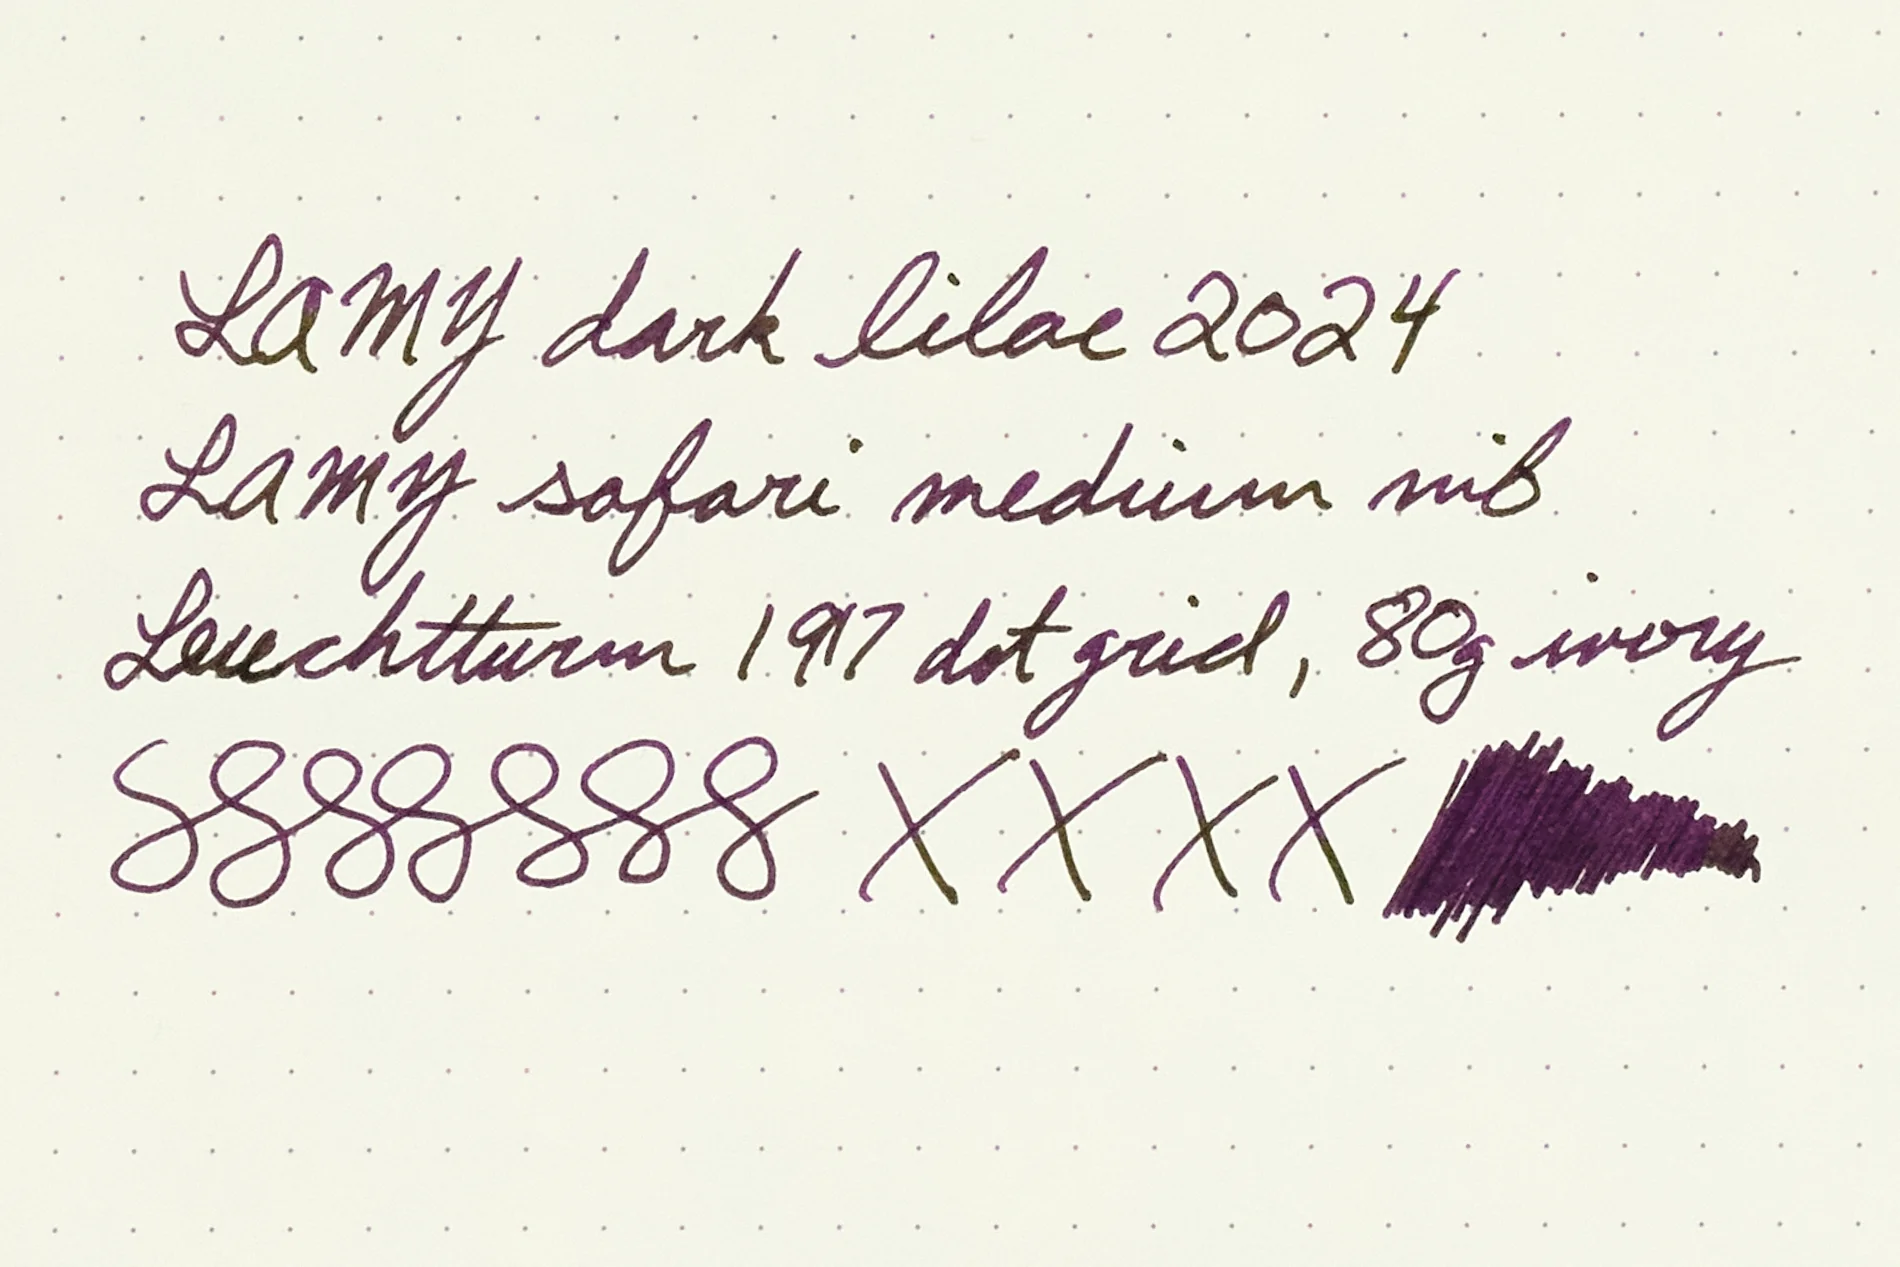 LAMY dark lilac 2024
LAMY safari medium nib
Leuchtturm 1917 dot grid, 80g ivory
X X X X